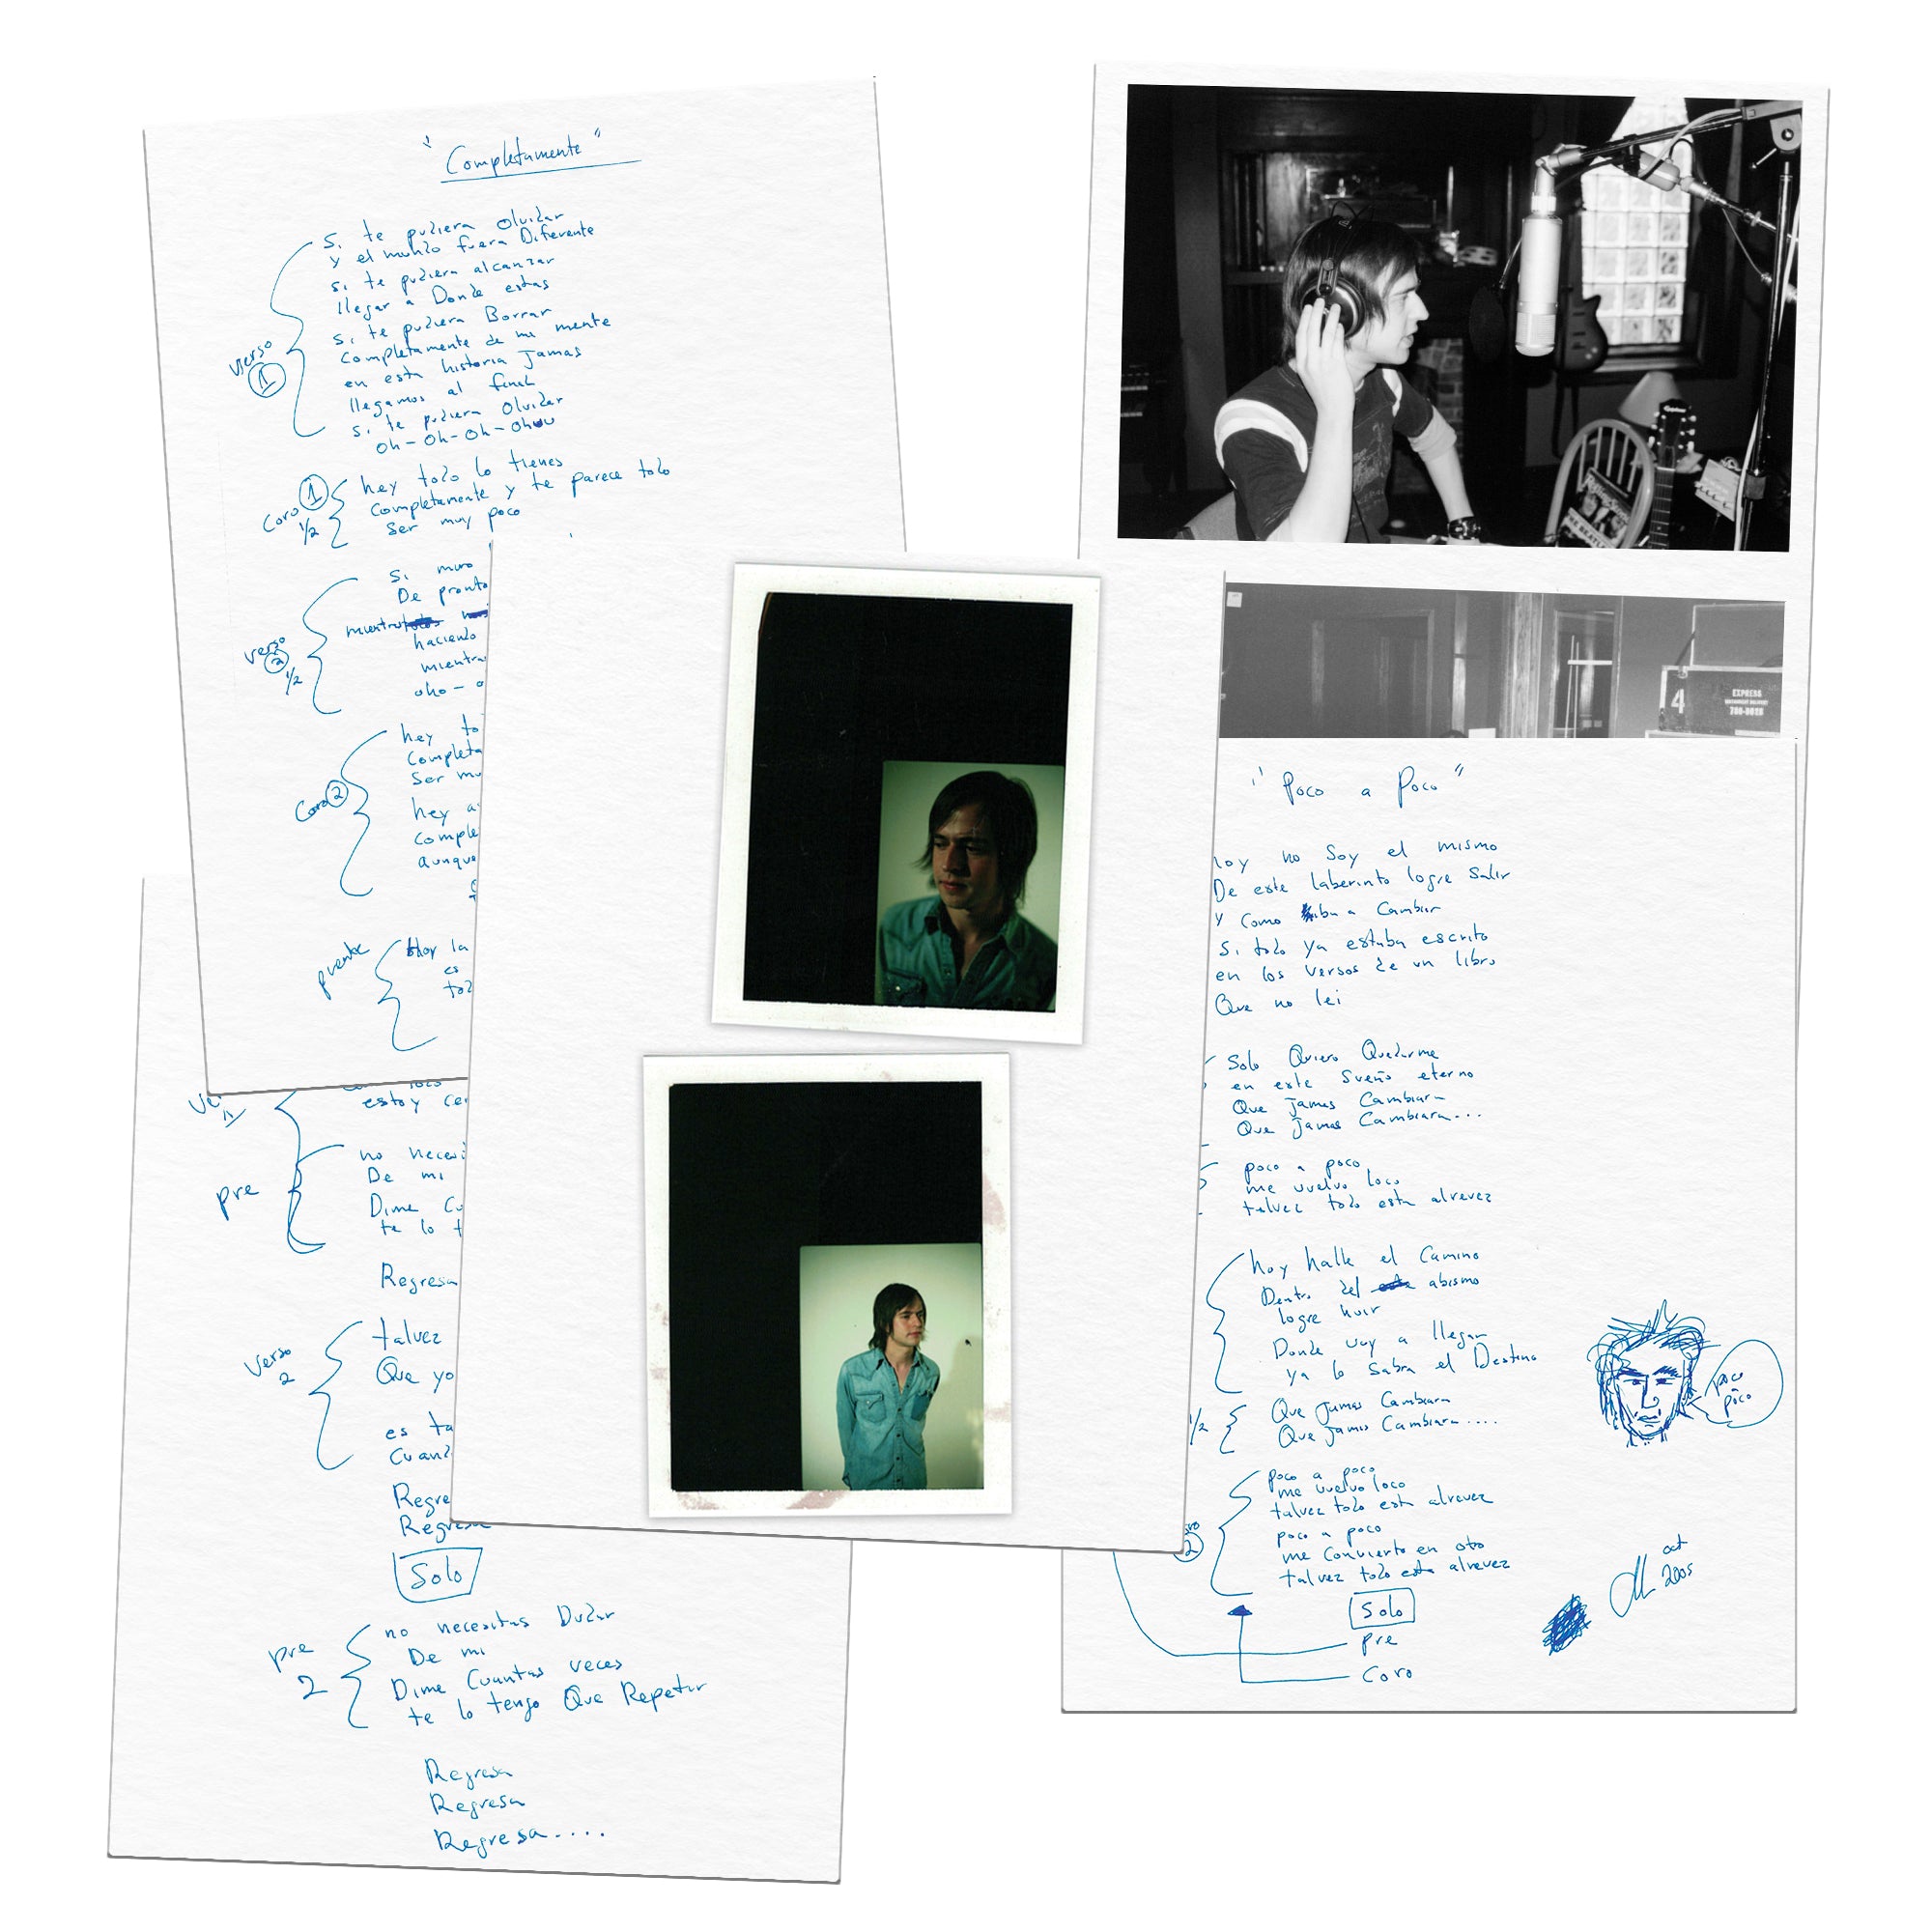 "Completamente"
Si te pudiera olvidar
y el mundo fuera Diferente
si te pudiera alcanzar
llegar a Donde estas
si te pudiera Borrar
Completamente de mi mente
en esta historia Jamas
llegamos al final
si te pudiera olvidar
oh-oh-oh-ohuu
verso
1
hey todo lo tienes
completamente y te parece todo
ser muy poco
Coro 1
1/2
Si miro
De pronto
haciendo
verso
2
1/2
hey
Ser
hey
Coro 2
aunque
puente
Hoy la
es
estoy
no
De mi
Dime
te lo
pre
Regresa
talvez
Que yo
es
verso
2
Regresa
Solo
no necesitas Dudar
De mi
Dime Cuantas veces
te lo tengo Que Repetir
pre
2
Regresa
Regresa
Regresa....
Epiphone
4
EXPRESS
"Poco a Poco"
hoy no Soy el mismo
De este laberinto logre Salir
y como iba a Cambiar
Si todo ya estaba escrito
en los versos de un libro
Que no lei
Solo Quiero Quedarme
en este Sueño eterno
Que jamas Cambiara
Que Jamas Cambiara...
poco a poco
me vuelvo loco
talvez todo esta alrevez
hoy halle el Camino
Dentro del abismo
logre huir
Donde voy a llegar
ya lo Sabra el Destino
Que jamas Cambiara
Que jamas Cambiara....
1/2
poco a poco
me vuelvo loco
talvez todo esta alrevez
poco a poco
me Convierto en otro
talvez todo esta alrevez
2
Solo
pre
Coro
poco
poco
oct
2005